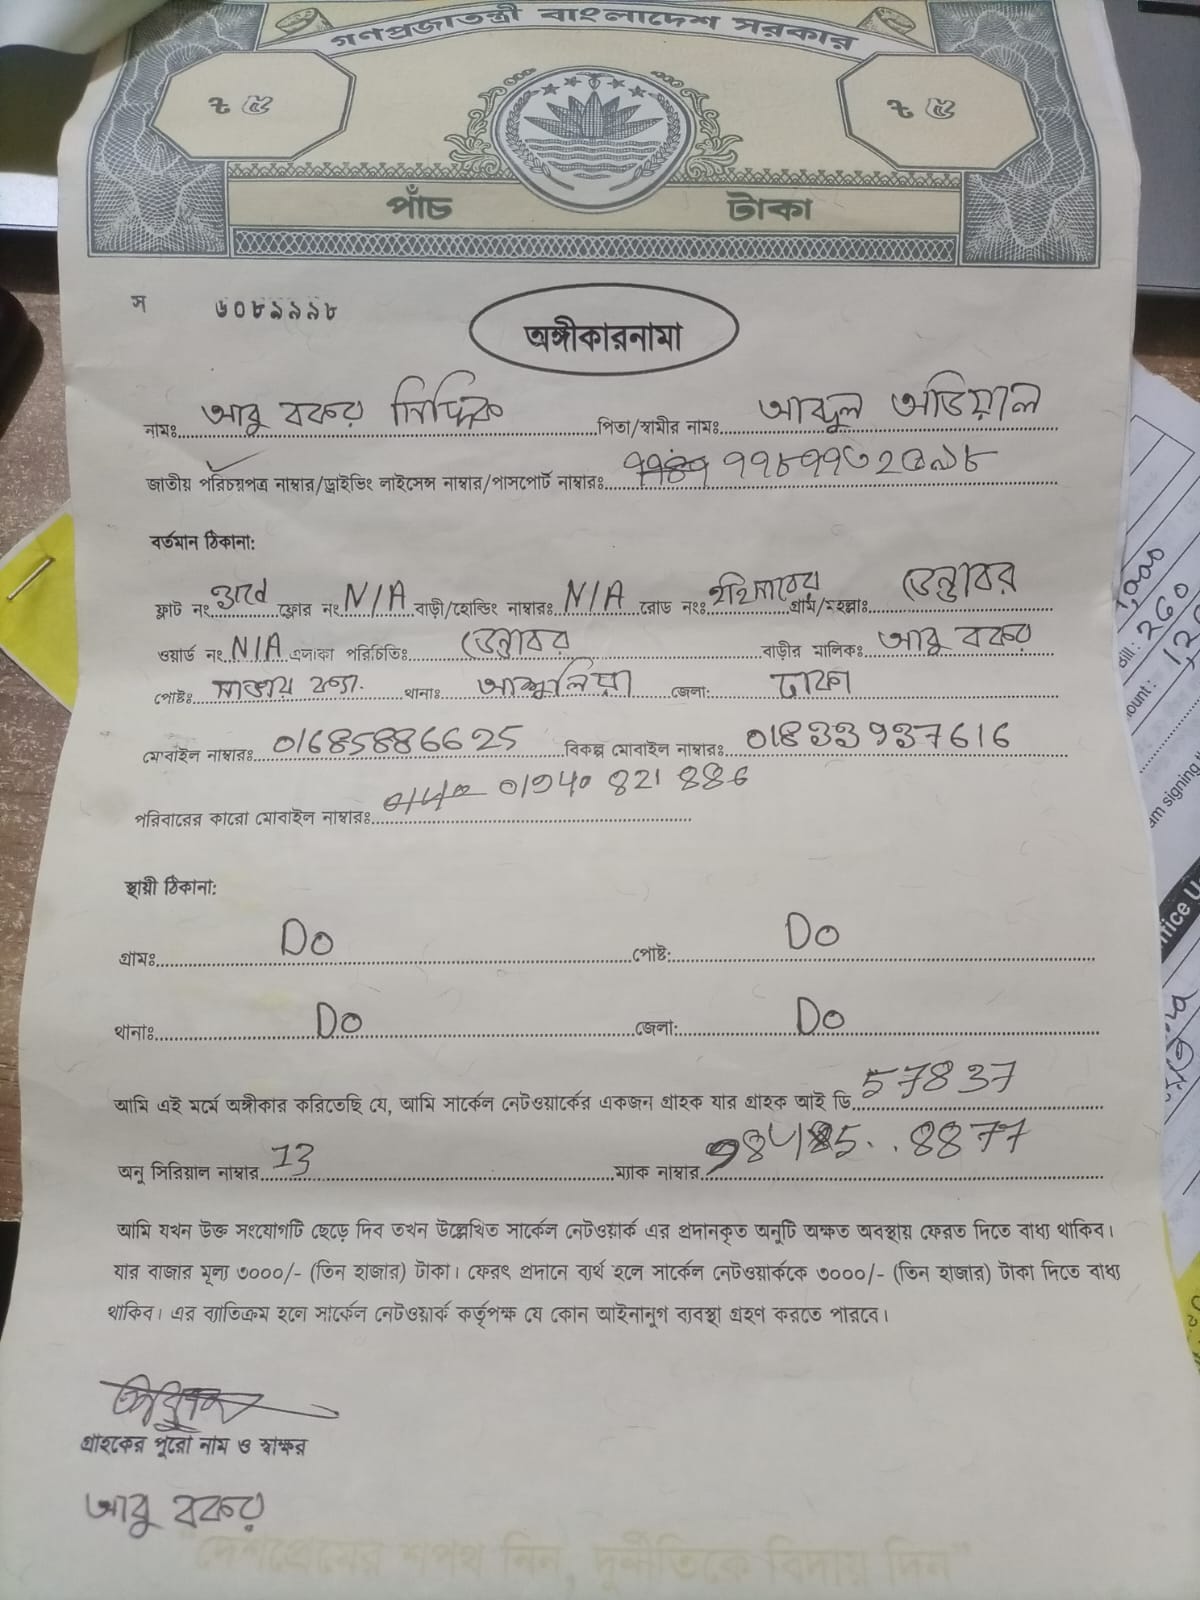 গণপ্রজাতন্ত্রী বাংলাদেশ সরকার
৳ ৫ ৳ ৫
পাঁচ টাকা
স ৬০৮৯৯৯৮
অঙ্গীকারনামা
নামঃ আবু বকর সিদ্দিক পিতা/স্বামীর নামঃ আব্দুল অডিয়াল
জাতীয় পরিচয়পত্র নাম্বার/ড্রাইভিং লাইসেন্স নাম্বার/পাসপোর্ট নাম্বারঃ
বর্তমান ঠিকানা:
ফ্লাট নং 3rd ফ্লোর নং N/A বাড়ী/হোল্ডিং নাম্বারঃ N/A রোড নং: গ্রাম/মহল্লাঃ
ওয়ার্ড নং N/A এলাকা পরিচিতিঃ বাড়ীর মালিকঃ আবু বকর
পোষ্টঃ থানাঃ আশুলিয়া জেলা: ঢাকা
মোবাইল নাম্বারঃ 01685886625 বিকল্প মোবাইল নাম্বারঃ 01833937616
পরিবারের কারো মোবাইল নাম্বারঃ 01940 821 886
স্থায়ী ঠিকানা:
গ্রামঃ Do পোষ্ট: Do
থানাঃ Do জেলা: Do
আমি এই মর্মে অঙ্গীকার করিতেছি যে, আমি সার্কেল নেটওয়ার্কের একজন গ্রাহক যার গ্রাহক আই ডি 57837
অনু সিরিয়াল নাম্বার 13 ম্যাক নাম্বার 8877
আমি যখন উক্ত সংযোগটি ছেড়ে দিব তখন উল্লেখিত সার্কেল নেটওয়ার্ক এর প্রদানকৃত অনুটি অক্ষত অবস্থায় ফেরত দিতে বাধ্য থাকিব।
যার বাজার মূল্য ৩০০০/- (তিন হাজার) টাকা। ফেরৎ প্রদানে ব্যর্থ হলে সার্কেল নেটওয়ার্ককে ৩০০০/- (তিন হাজার) টাকা দিতে বাধ্য
থাকিব। এর ব্যাতিক্রম হলে সার্কেল নেটওয়ার্ক কর্তৃপক্ষ যে কোন আইনানুগ ব্যবস্থা গ্রহণ করতে পারবে।
গ্রাহকের পুরো নাম ও স্বাক্ষর
আবু বকর
"দেশপ্রেমের শপথ নিন, দুর্নীতিকে বিদায় দিন"
1,000
Bill: 260
am signing